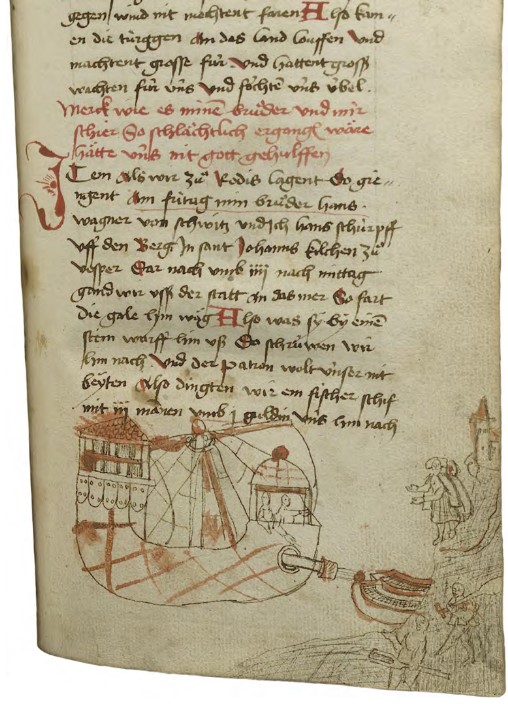 gegen wind nit mochtent faren Also kam-
en die türggen an das land louffen Vnd
machtent grosse für Vnd hattent gross
wachten für vns Vnd fochtẽ vns übel.
Merck wie es minẽ brüder vnd mir
schier So schlächtlich ergangẽ wäre
hätte vns nit gott gehulffen
Item Als wir zů Rodis lagent So gie-
ngent Am fritag min brůder hans
wagner von schwitz vnd Ich hans schürpff
vff den Berg In sant Johanns kilchen zů
vesper Dar nach vmb iiij nach mittag
gand wir vss der statt an das mer So fart
die gale hin wäg Also was sy by einẽ
stein warff hin vß Do schrüwen wir
hin nach Vnd der Patron wolt vnser nit
beyten Also dingten wir ein fischer schif
mit iij manen vmb j guldin vns hin nach